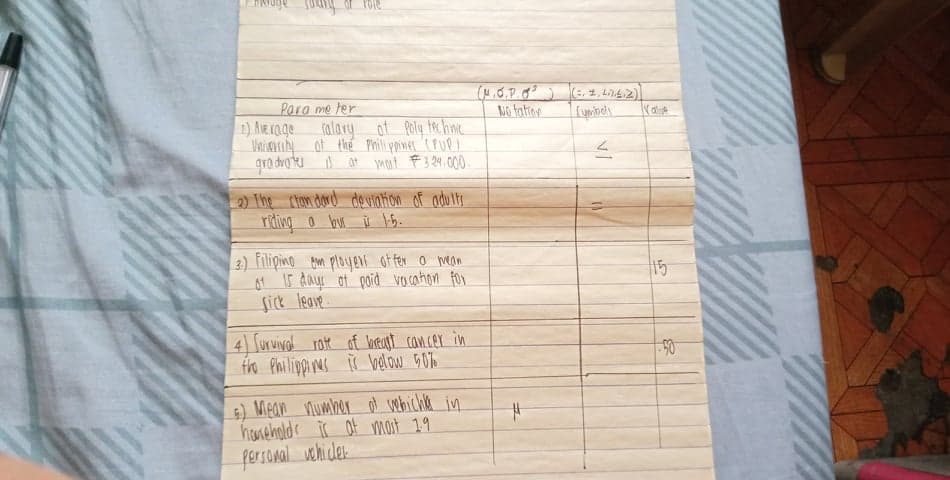 Average salary of role
(μ, σ, P, σ² ) (=, ≠, <, >, ≤, ≥)
Parameter Notation Symbols Value
1.) Average salary of Polytechnic
University of the Philippines (PUP)
graduates is at most ₱324,000. ≤
2) The standard deviation of adults
riding a bus is 1.5. =
3.) Filipino employers offer a mean
of 15 days of paid vacation for 15
sick leave.
4) Survival rate of breast cancer in
the Philippines is below 50% .50
5.) Mean number of vehicles in
households is at most 1.9 μ
personal vehicles